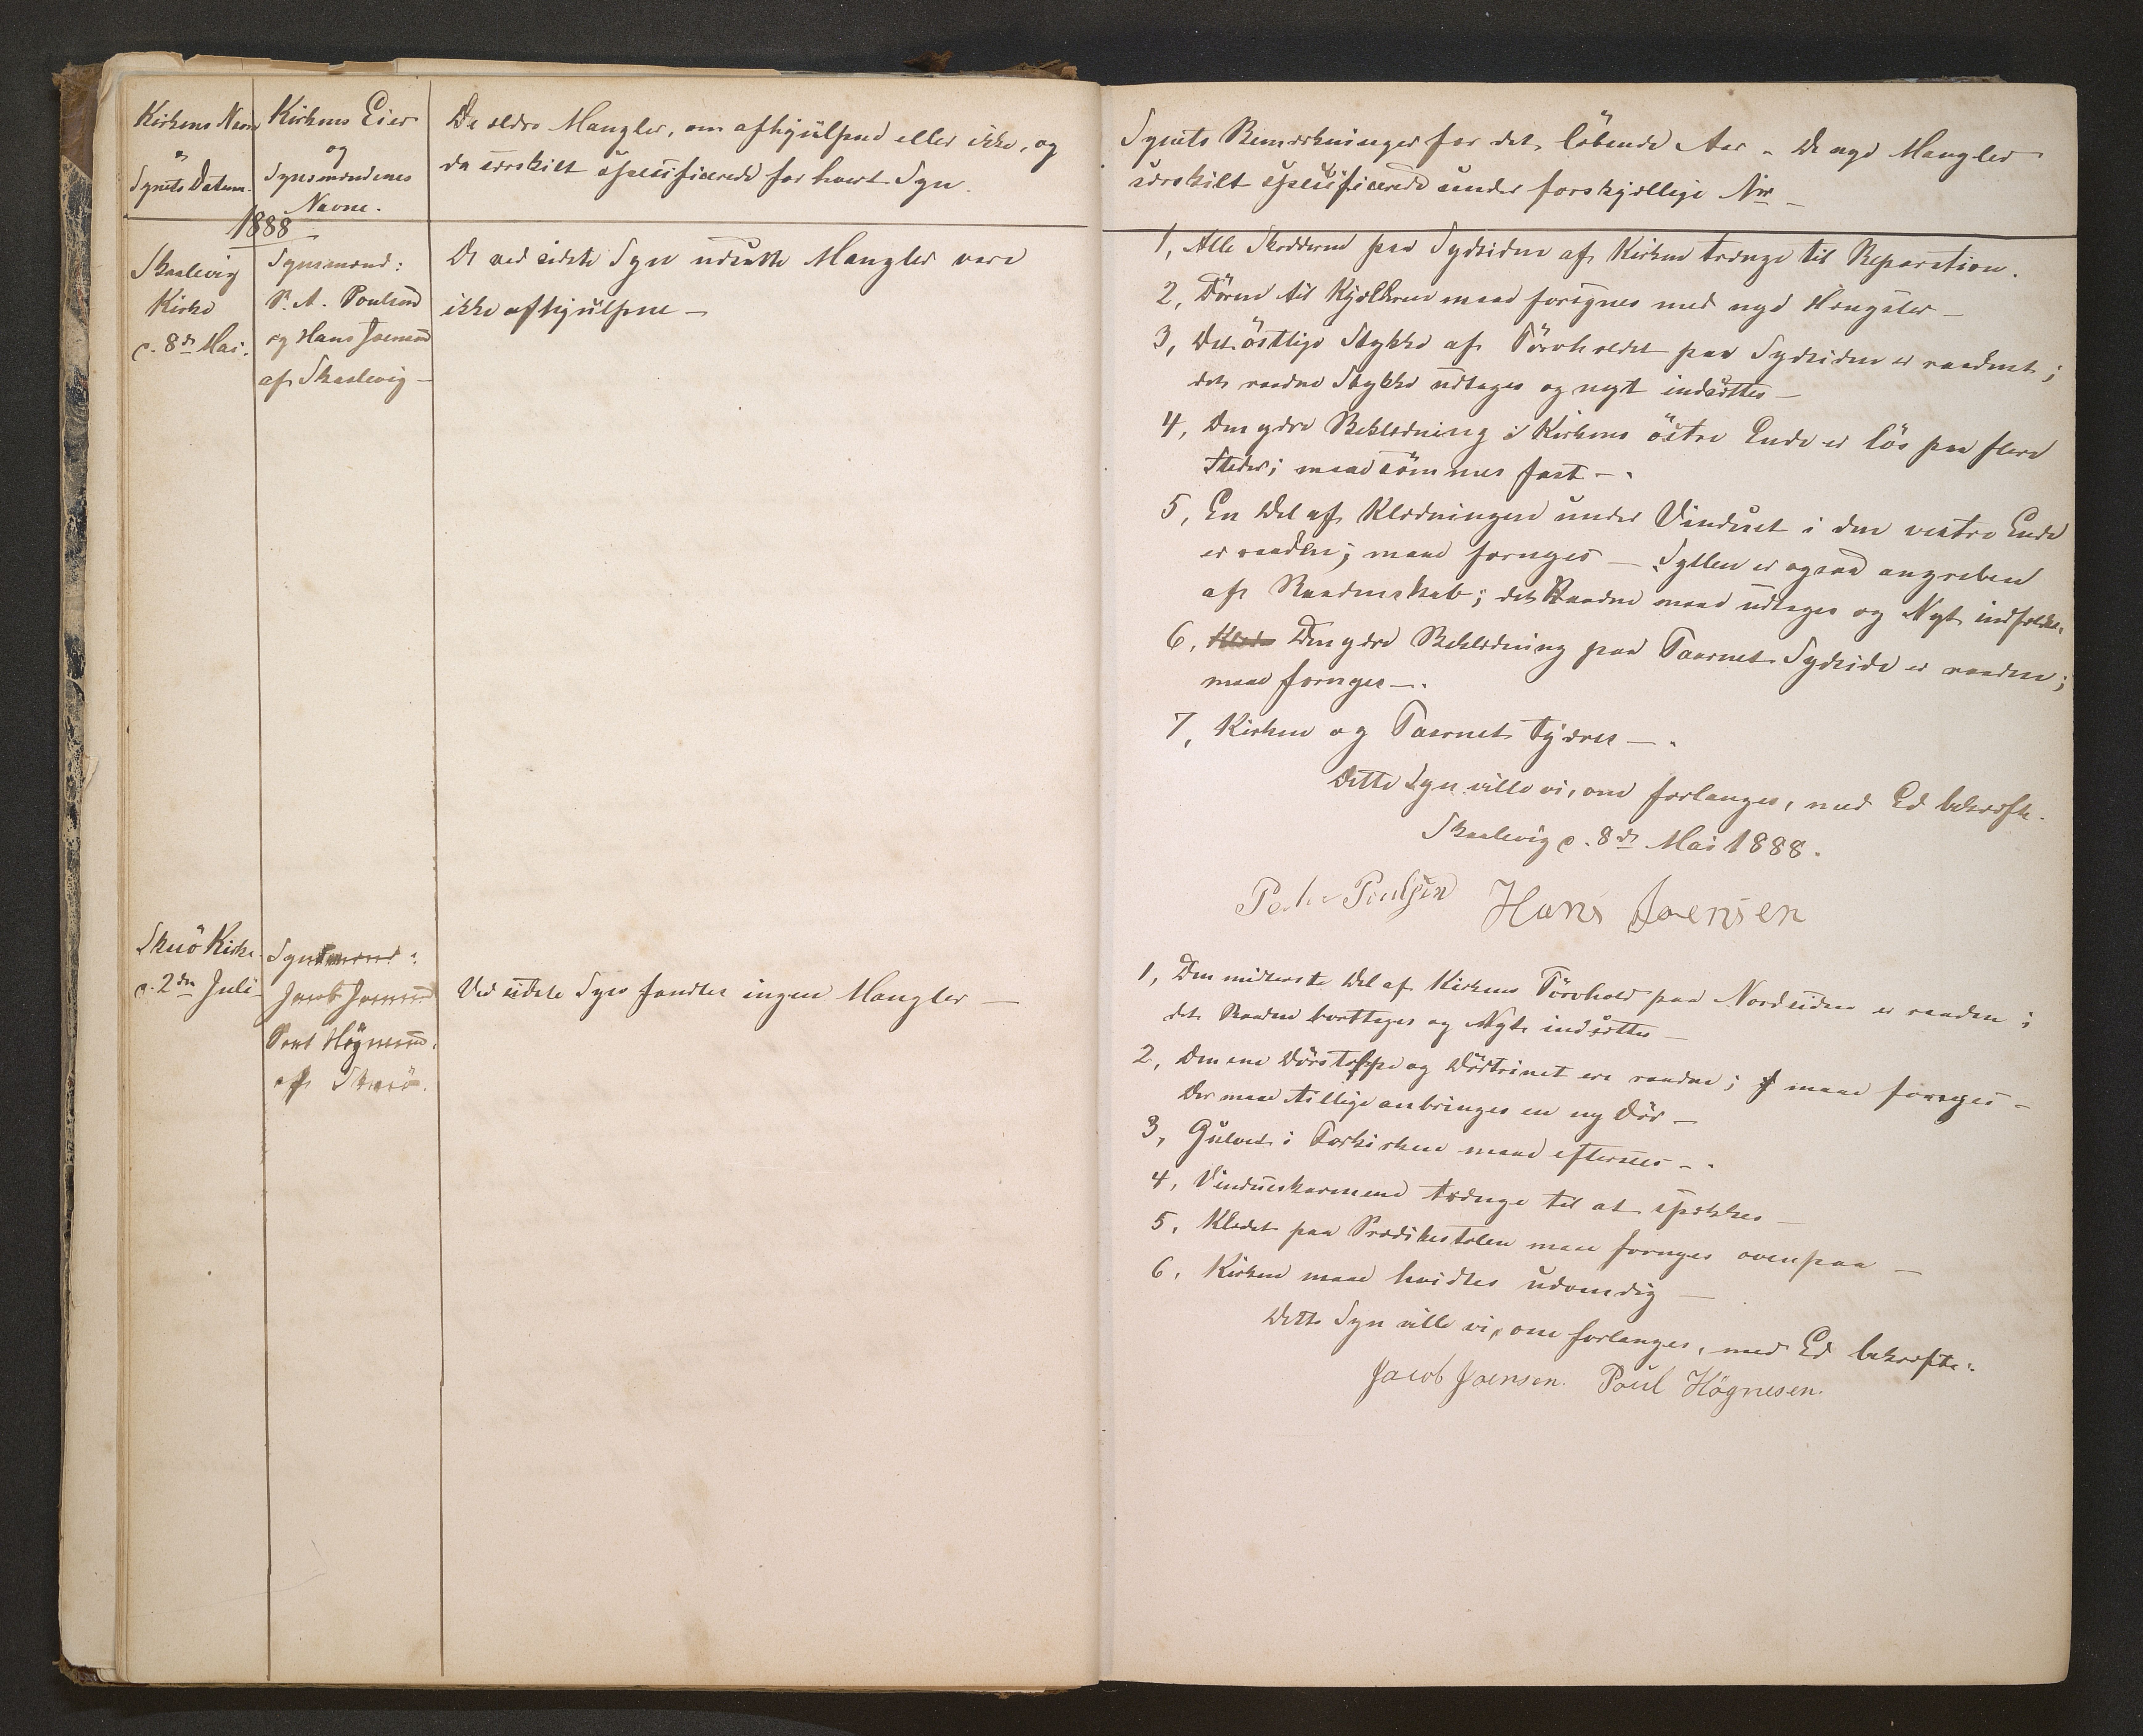 Kirkens Navn
og
Synets Datum.
Kirkens Eier
og
Synsmændenes
Navne.
De ældre Mangler, om afhjulpne eller ikke, og
da særskilt specificerede for hvert Syn.
1888
Skaalevig
Kirke
d. 8de Mai.
Synsmænd:
P. A. Poulsen
og Hans Joensen
af Skaalevig —
De ved sidste Syn udsatte Mangler vare
ikke afhjulpne —
Skuö Kirke
d. 2den Juli
Synsmænd:
Jacob Joensen
Poul Högnesen
af Skuö.
Ved sidste Syn fandtes ingen Mangler —
Synets Bemærkninger for det löbende Aar. De nye Mangler
særskilt specificerede under forskjellige Nr —
1, Alle Skodderne paa Sydsiden af Kirken trænge til Reparation.
2, Dören til Kjælderen maa forsynes med nye Hængsler —
3, Det östlige Stykke af Törvholdet paa Sydsiden er raadent;
det raadne Stykke udtages og nyt indsættes —
4, Den ydre Beklædning i Kirkens östre Ende er lös paa flere
Steder; maa sömmes fast —.
5, En Del af Klædningen under Vinduet i den vestre Ende
er raaden; maa fornyes — Syllen er ogsaa angreben
af Raadenskab; det Raadne maa udtages og Nyt indfældes.
6, Den ydre Beklædning paa Taarnets Sydside er raaden;
maa fornyes —.
7, Kirken og Taarnet tjæres —.
Dette Syn ville vi, om forlanges, med Ed bekræfte.
Skaalevig d. 8de Mai 1888.
Peter Poulsen Hans Joensen
1, Den midterste Del af Kirkens Törvhold paa Nordsiden er raaden;
det Raadne borttages og Nyt indsættes —
2, Den ene Dörstolpe og Dörtrinet ere raadne; maa fornyes —
Der maa tillige anbringes en ny Dör —
3, Gulvet i Forkirken maa eftersees —.
4, Vindueskarmene trænge til at spækkes —
5, Klædet paa Prædikestolen maa fornyes ovenpaa —
6, Kirken maa hvidtes udvendig —
Dette Syn ville vi, om forlanges, med Ed bekræfte:
Jacob Joensen. Poul Högnesen.